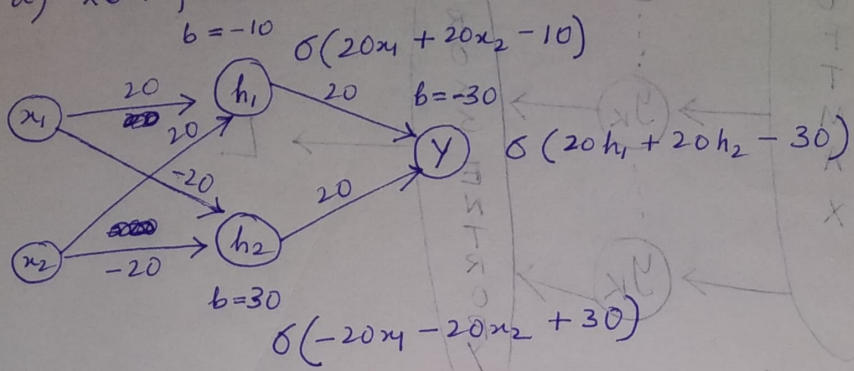 b = -10
σ(20x₁ + 20x₂ - 10)
x₁
20
h₁
20
b = -30
20
-20
Y
σ(20h₁ + 20h₂ - 30)
20
x₂
-20
h₂
b = 30
σ(-20x₁ - 20x₂ + 30)